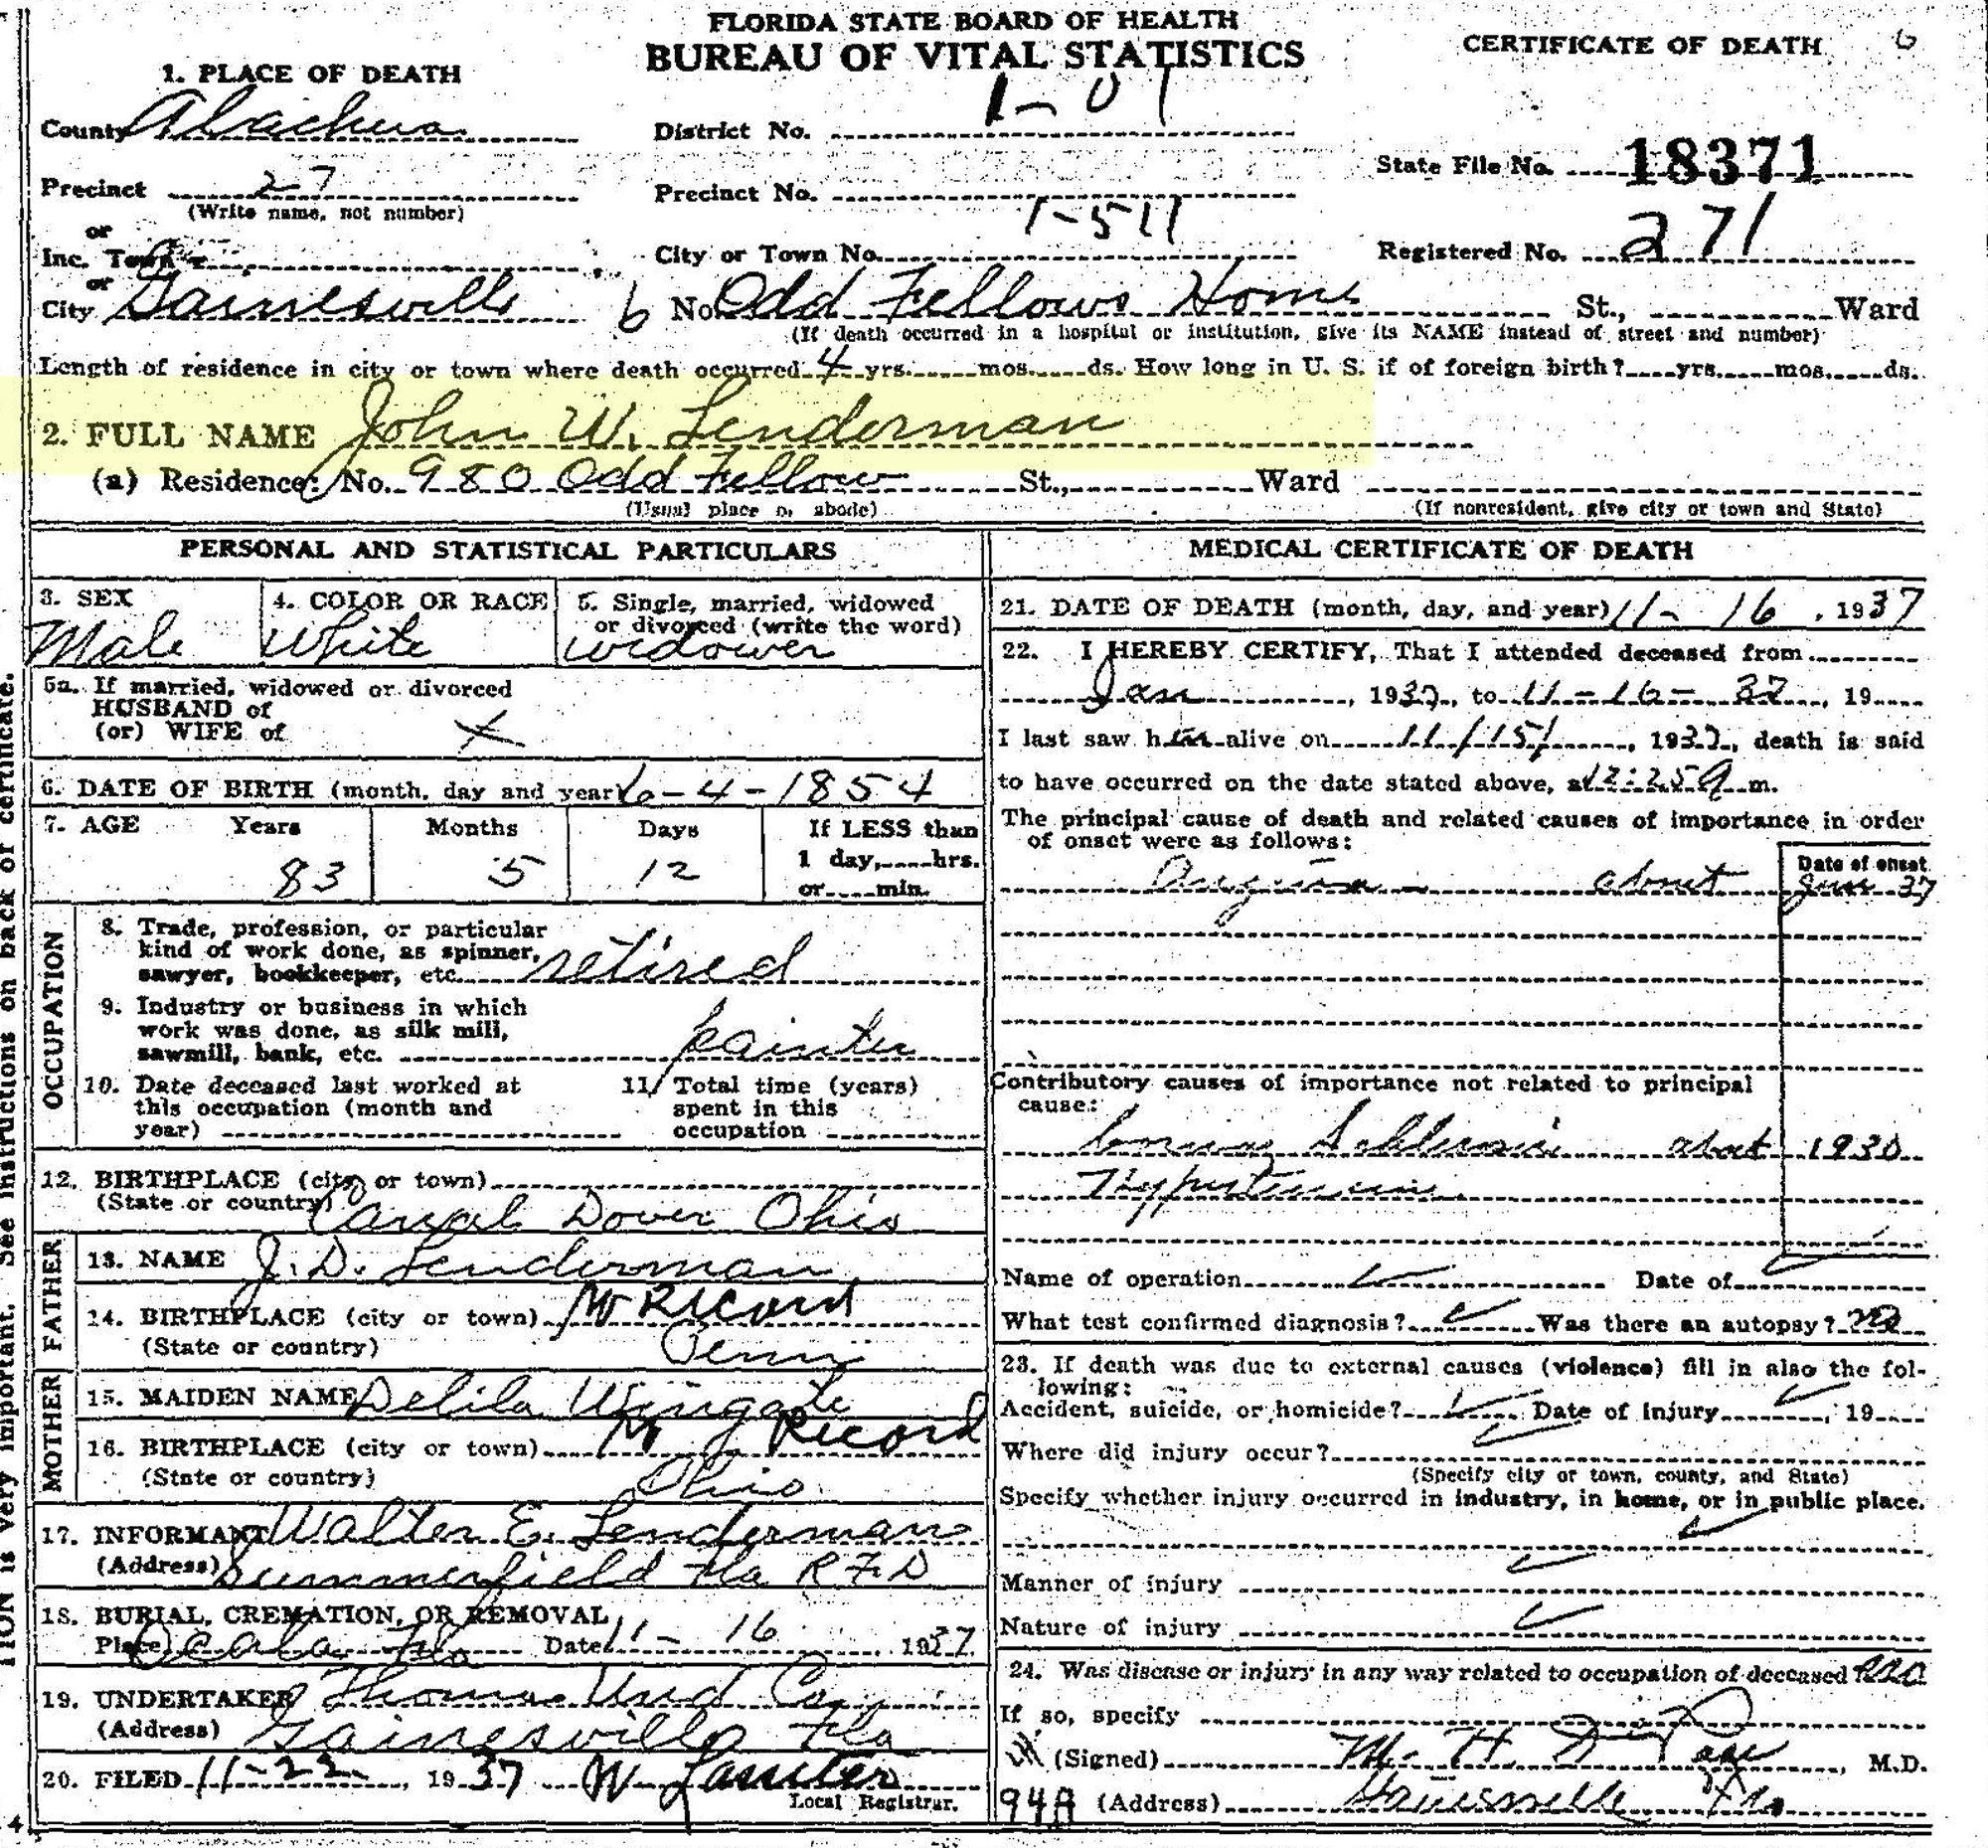 FLORIDA STATE BOARD OF HEALTH
BUREAU OF VITAL STATISTICS
CERTIFICATE OF DEATH 6
1. PLACE OF DEATH
County Alachua District No. 1-01
State File No. 18371
Precinct 27 Precinct No.
(Write name, not number)
or
Inc. Town City or Town No. 1-511 Registered No. 271
or
City Gainesville 6 No. Odd Fellows Home St., Ward
(If death occurred in a hospital or institution, give its NAME instead of street and number)
Length of residence in city or town where death occurred 4 yrs. mos. ds. How long in U. S. if of foreign birth? yrs. mos. ds.
2. FULL NAME John W. Lenderman
(a) Residence: No. 980 Odd Fellow St., Ward
(Usual place of abode) (If nonresident, give city or town and State)
PERSONAL AND STATISTICAL PARTICULARS
3. SEX 4. COLOR OR RACE 5. Single, married, widowed
or divorced (write the word)
Male White widower
5a. If married, widowed or divorced
HUSBAND of
(or) WIFE of X
6. DATE OF BIRTH (month, day and year) 6-4-1854
7. AGE Years Months Days If LESS than
1 day, hrs.
83 5 12 or min.
OCCUPATION
8. Trade, profession, or particular
kind of work done, as spinner,
sawyer, bookkeeper, etc. retired
9. Industry or business in which
work was done, as silk mill,
sawmill, bank, etc. painter
10. Date deceased last worked at 11. Total time (years)
this occupation (month and spent in this
year) occupation
12. BIRTHPLACE (city or town)
(State or country) Canal Dover Ohio
FATHER
13. NAME J. D. Lenderman
14. BIRTHPLACE (city or town) Record
(State or country) Penn
MOTHER
15. MAIDEN NAME Delila Wingate
16. BIRTHPLACE (city or town) Record
(State or country) Ohio
17. INFORMANT Walter E. Lenderman
(Address) Summerfield Fla R.F.D
18. BURIAL, CREMATION, OR REMOVAL
Place Ocala Fla Date 11-16 1937
19. UNDERTAKER Thomas Und Co
(Address) Gainesville Fla
20. FILED 11-22, 1937 W
Local Registrar.
MEDICAL CERTIFICATE OF DEATH
21. DATE OF DEATH (month, day, and year) 11-16, 1937
22. I HEREBY CERTIFY, That I attended deceased from
Jan, 1937, to 11-16-37, 19
I last saw him alive on 11/15/, 1937, death is said
to have occurred on the date stated above, at 12:25a m.
The principal cause of death and related causes of importance in order
of onset were as follows:
Date of onset
Angina about 37
Contributory causes of importance not related to principal
cause:
about 1930
Hypertension
Name of operation Date of
What test confirmed diagnosis? Was there an autopsy? no
23. If death was due to external causes (violence) fill in also the fol-
lowing:
Accident, suicide, or homicide? Date of injury, 19
Where did injury occur?
(Specify city or town, county, and State)
Specify whether injury occurred in industry, in home, or in public place.
Manner of injury
Nature of injury
24. Was disease or injury in any way related to occupation of deceased? no
If so, specify
(Signed) M. H. M.D.
94A (Address) Gainesville Fla
See instructions on back of certificate.
TION is very important.